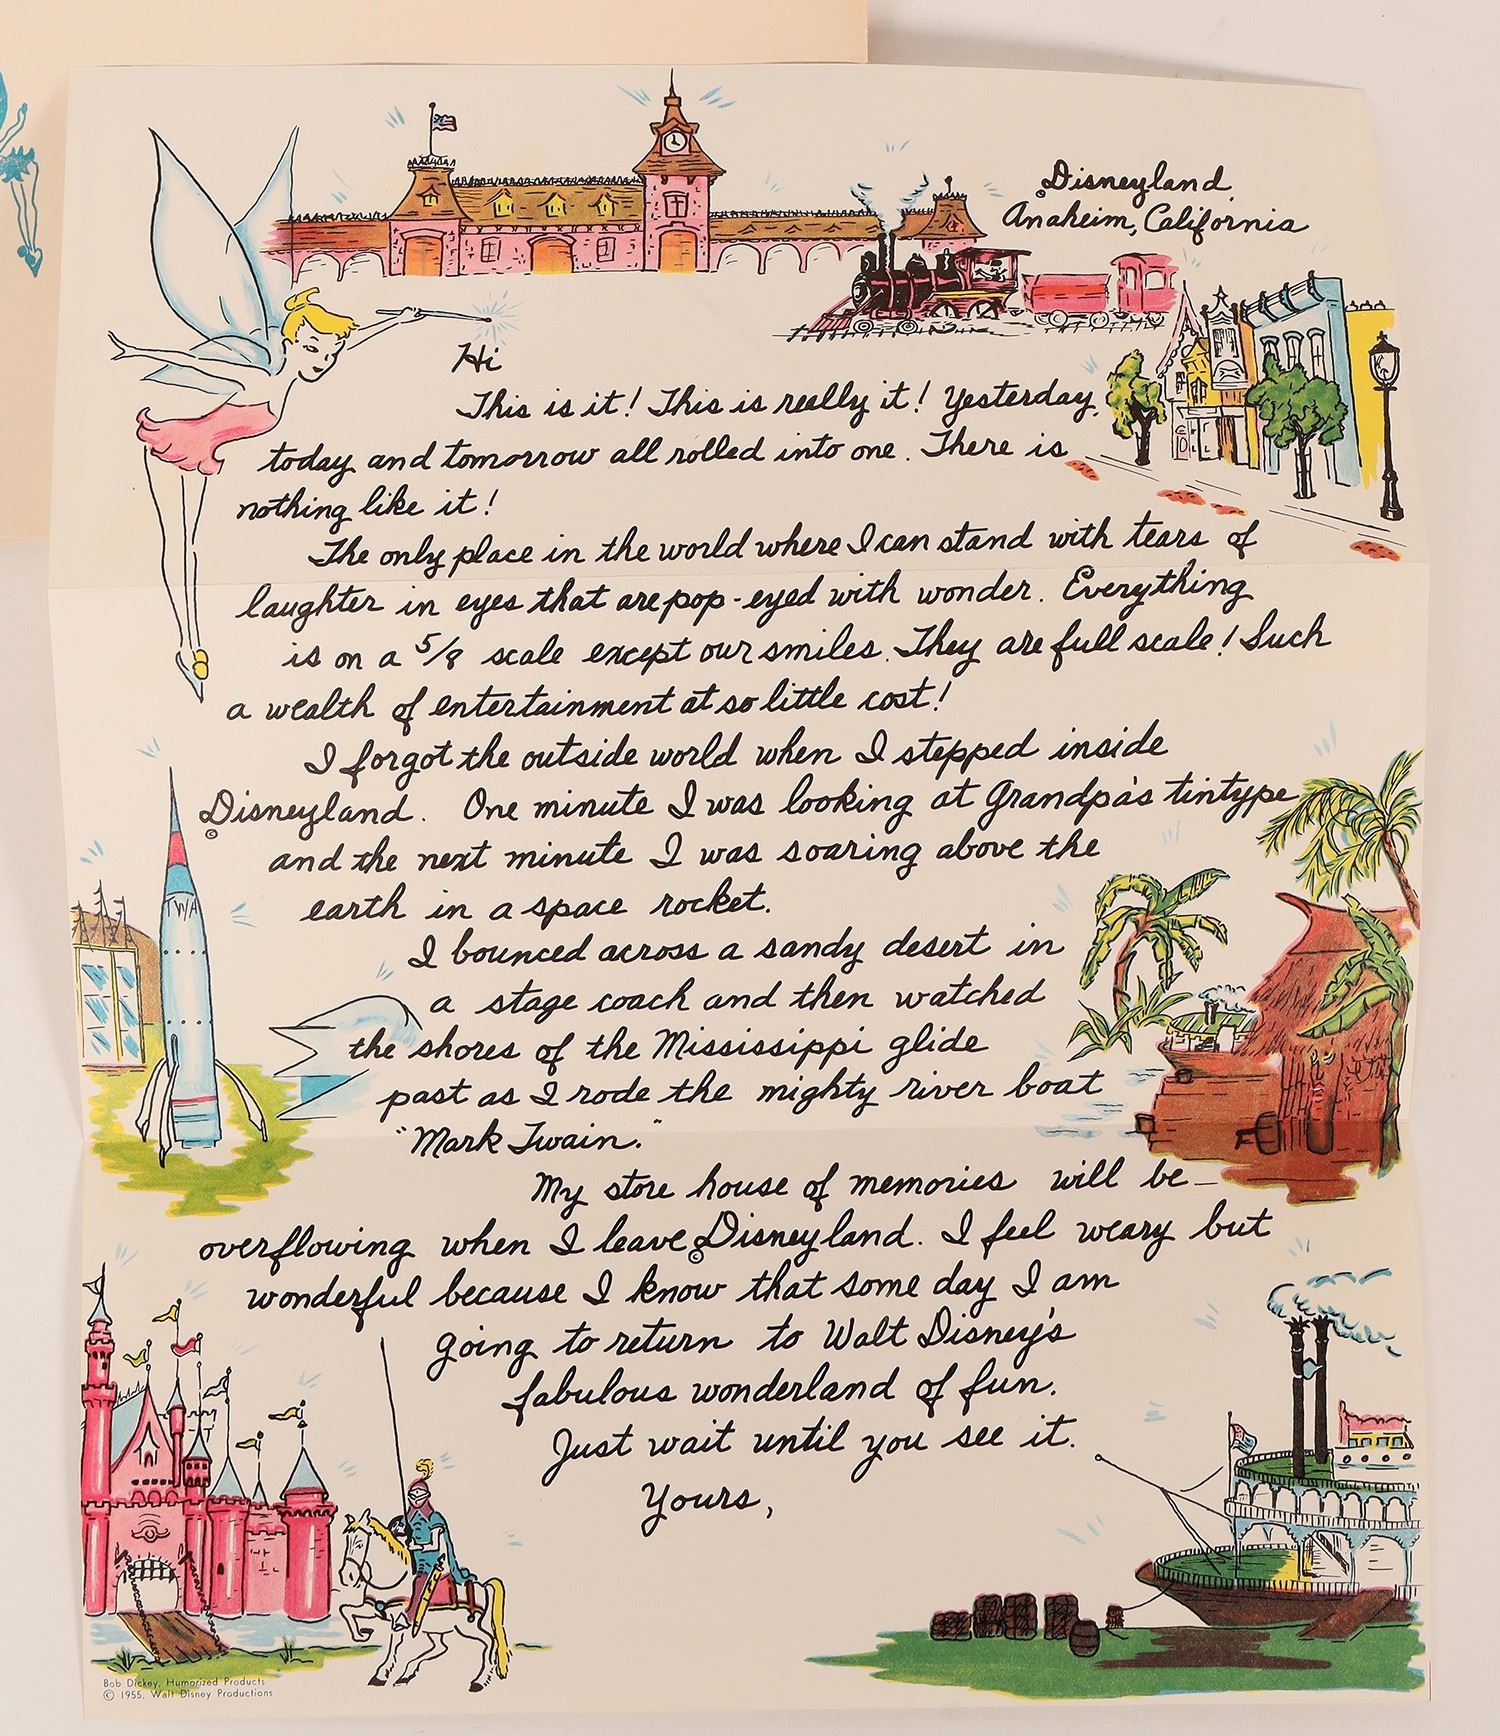 Disneyland
Anaheim, California
Hi
This is it! This is really it! Yesterday,
today and tomorrow all rolled into one. There is
nothing like it!
The only place in the world where I can stand with tears of
laughter in eyes that are pop-eyed with wonder. Everything
is on a 5/8 scale except our smiles. They are full scale! Such
a wealth of entertainment at so little cost!
I forgot the outside world when I stepped inside
©Disneyland. One minute I was looking at Grandpa's tintype
and the next minute I was soaring above the
earth in a space rocket.
TWA
I bounced across a sandy desert in
a stage coach and then watched
the shores of the Mississippi glide
past as I rode the mighty river boat
"Mark Twain."
My store house of memories will be
overflowing when I leave ©Disneyland. I feel weary but
wonderful because I know that some day I am
going to return to Walt Disney's
fabulous wonderland of fun.
Just wait until you see it.
Yours,
Bob Dickey, Humorized Products
© 1955, Walt Disney Productions